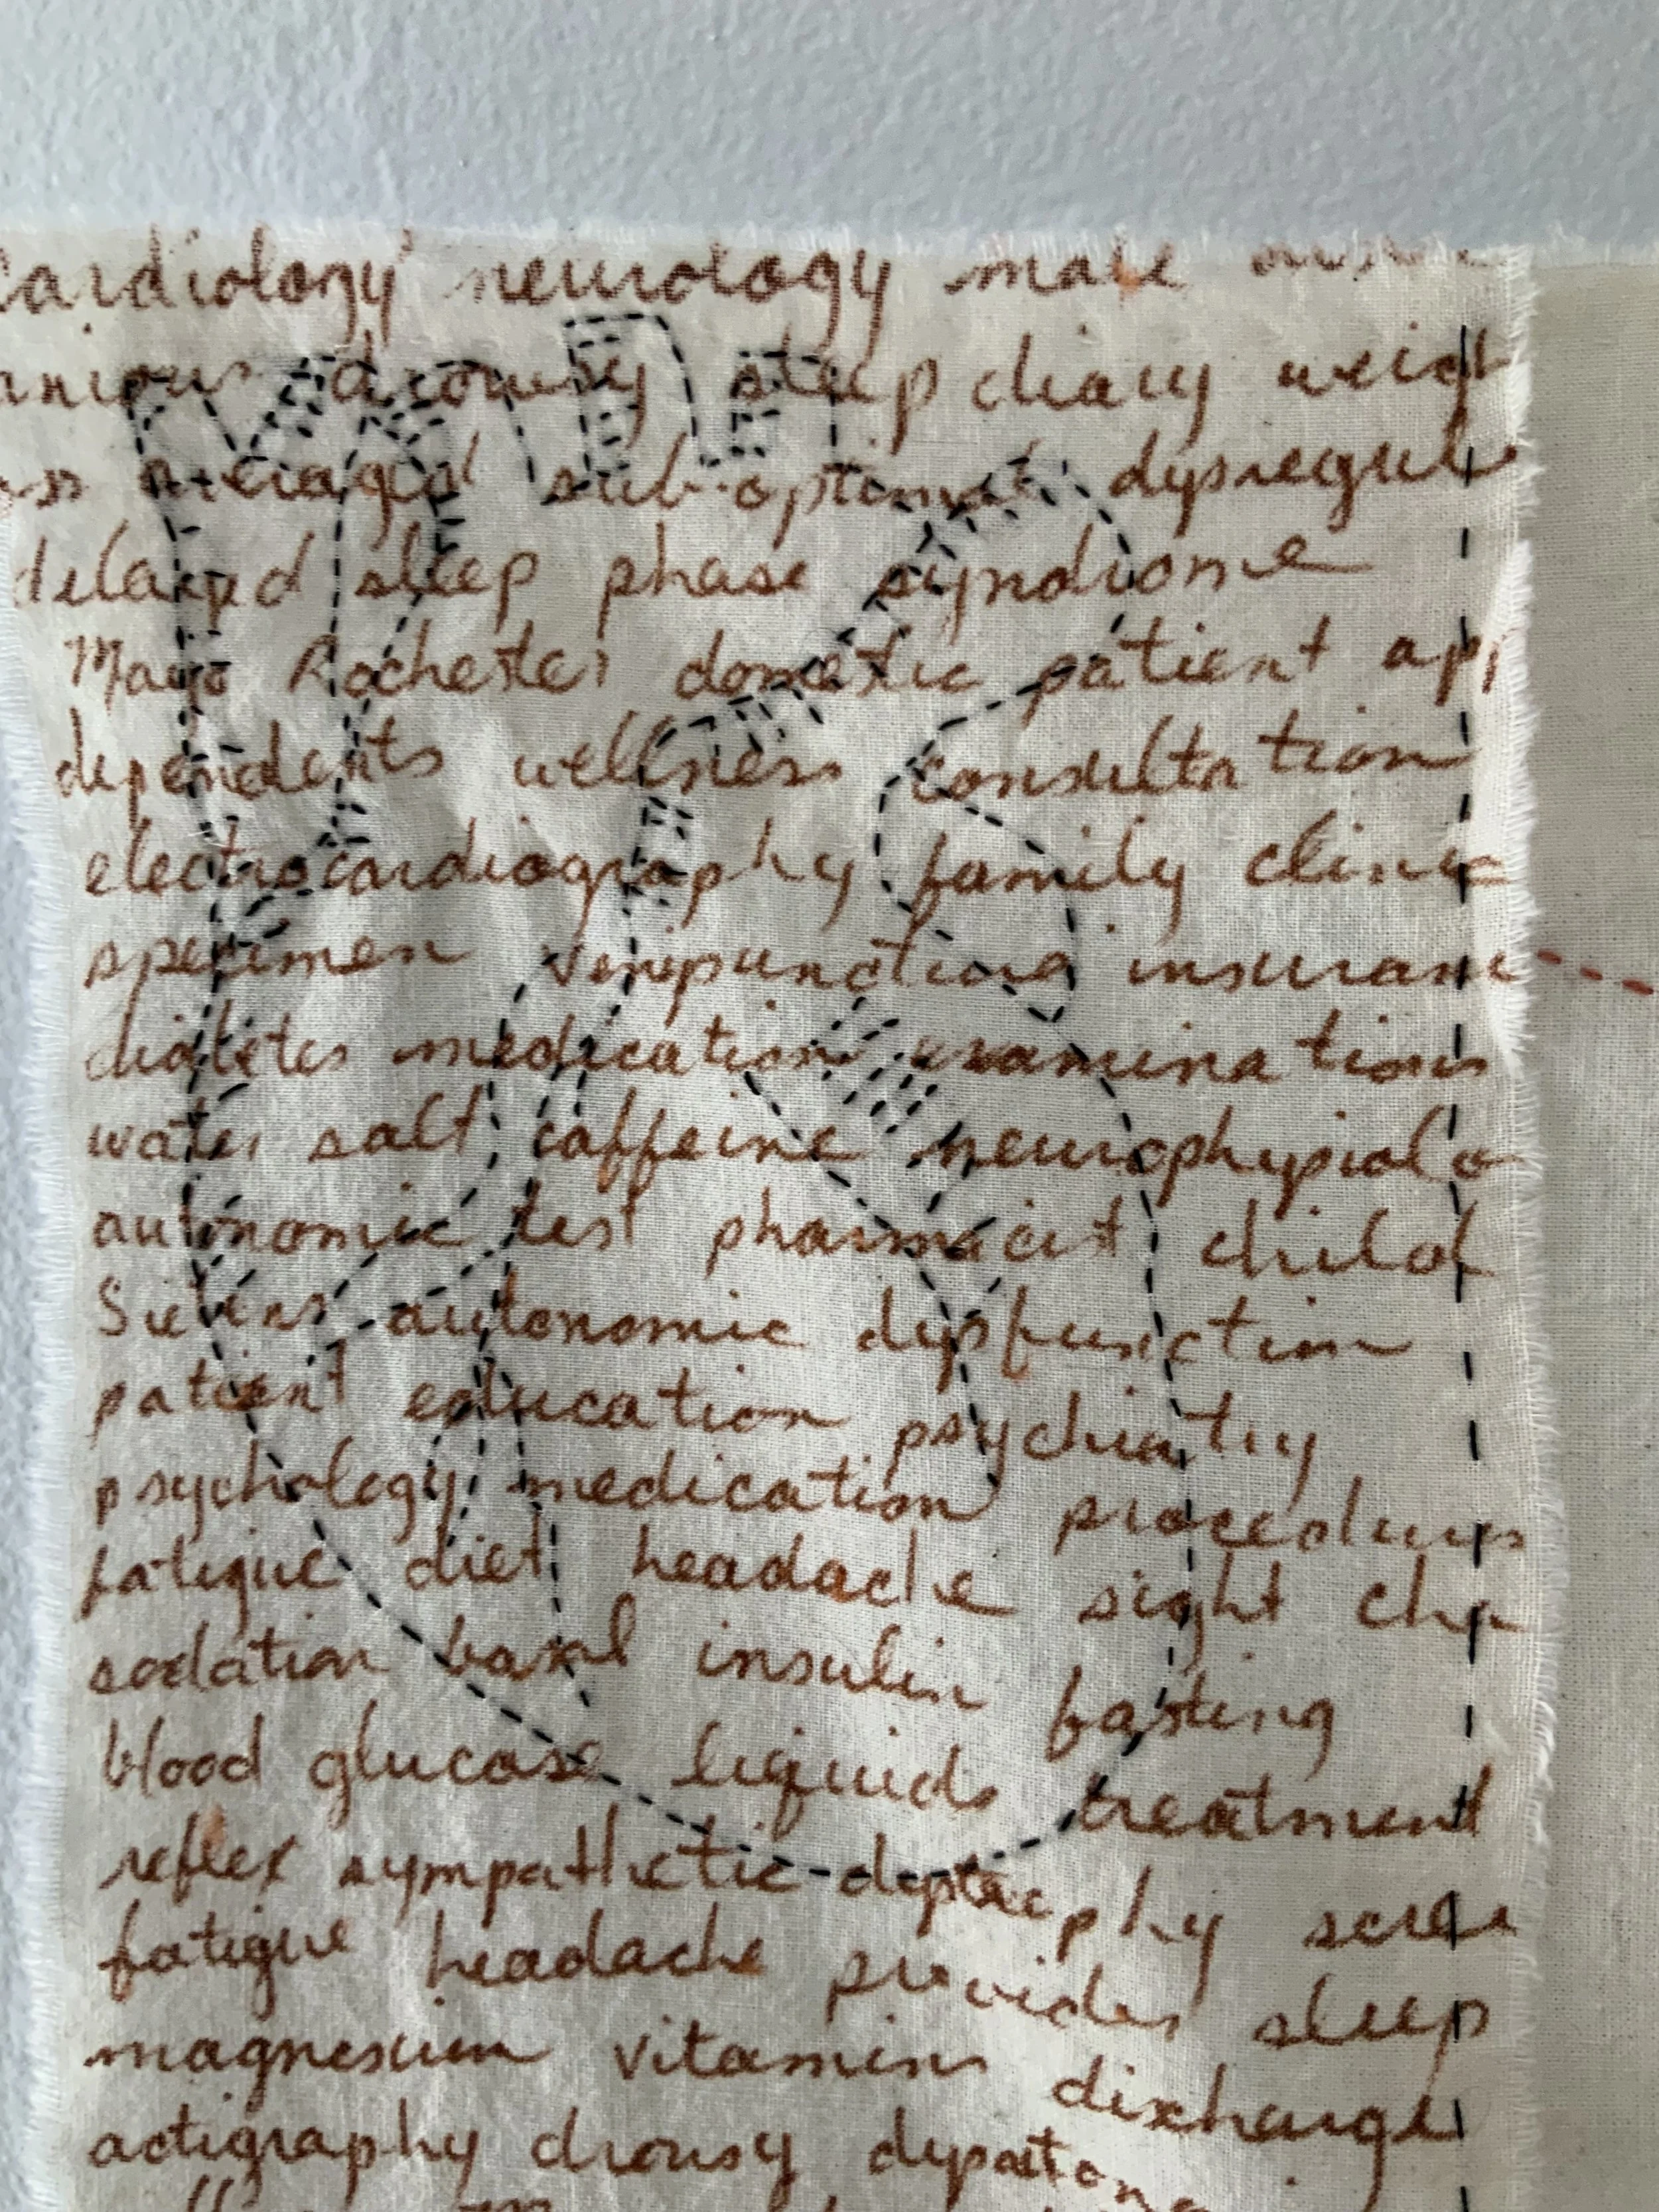 cardiology neurology male
drowsy sleep diary weigh
average sub-optimal dysregul
delayed sleep phase syndrome
Mayo Rochester domestic patient app
dependents wellness consultation
electrocardiography family clinic
specimen venipuncture insuranc
diabetes medication examinations
water salt caffeine neurophysiolo
autonomic test pharmacist child
autonomic dysfunction
patient education psychiatry
psychology medication procedures
fatigue diet headache sight cha
basal insulin fasting
blood glucose liquids treatment
reflex sympathetic dystrophy scree
fatigue headache provider sleep
magnesium vitamins discharge
actigraphy drowsy dysauton